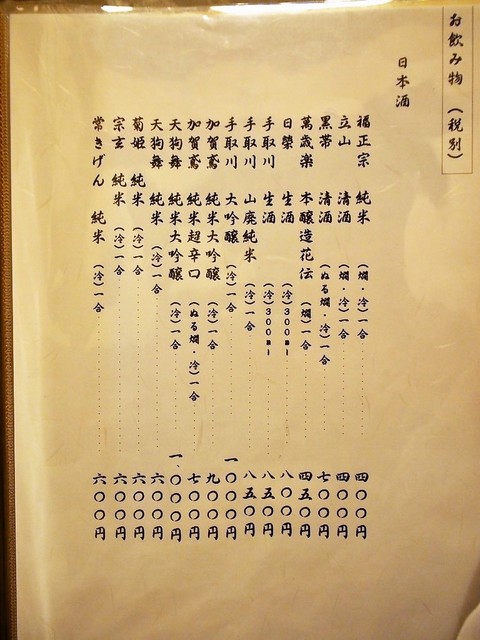 お飲み物 (税別)
日本酒
福正宗 純米 (燗・冷)一合 四〇〇円
立山 清酒 (燗・冷)一合 四〇〇円
黒帯 清酒 (ぬる燗・冷)一合 七〇〇円
萬歳楽 本醸造花伝 (燗)一合 四五〇円
日榮 生酒 (冷)300ml 八〇〇円
手取川 生酒 (冷)300ml 八五〇円
手取川 山廃純米 (冷)一合 八五〇円
手取川 大吟醸 (冷)一合 一〇〇〇円
加賀鳶 純米大吟醸 (冷)一合 九〇〇円
加賀鳶 純米超辛口 (ぬる燗・冷)一合 七〇〇円
天狗舞 純米大吟醸 (冷)一合 一、〇〇〇円
天狗舞 純米 (冷)一合 六〇〇円
菊姫 純米 (冷)一合 六〇〇円
宗玄 純米 (冷)一合 六〇〇円
常きげん 純米 (冷)一合 六〇〇円